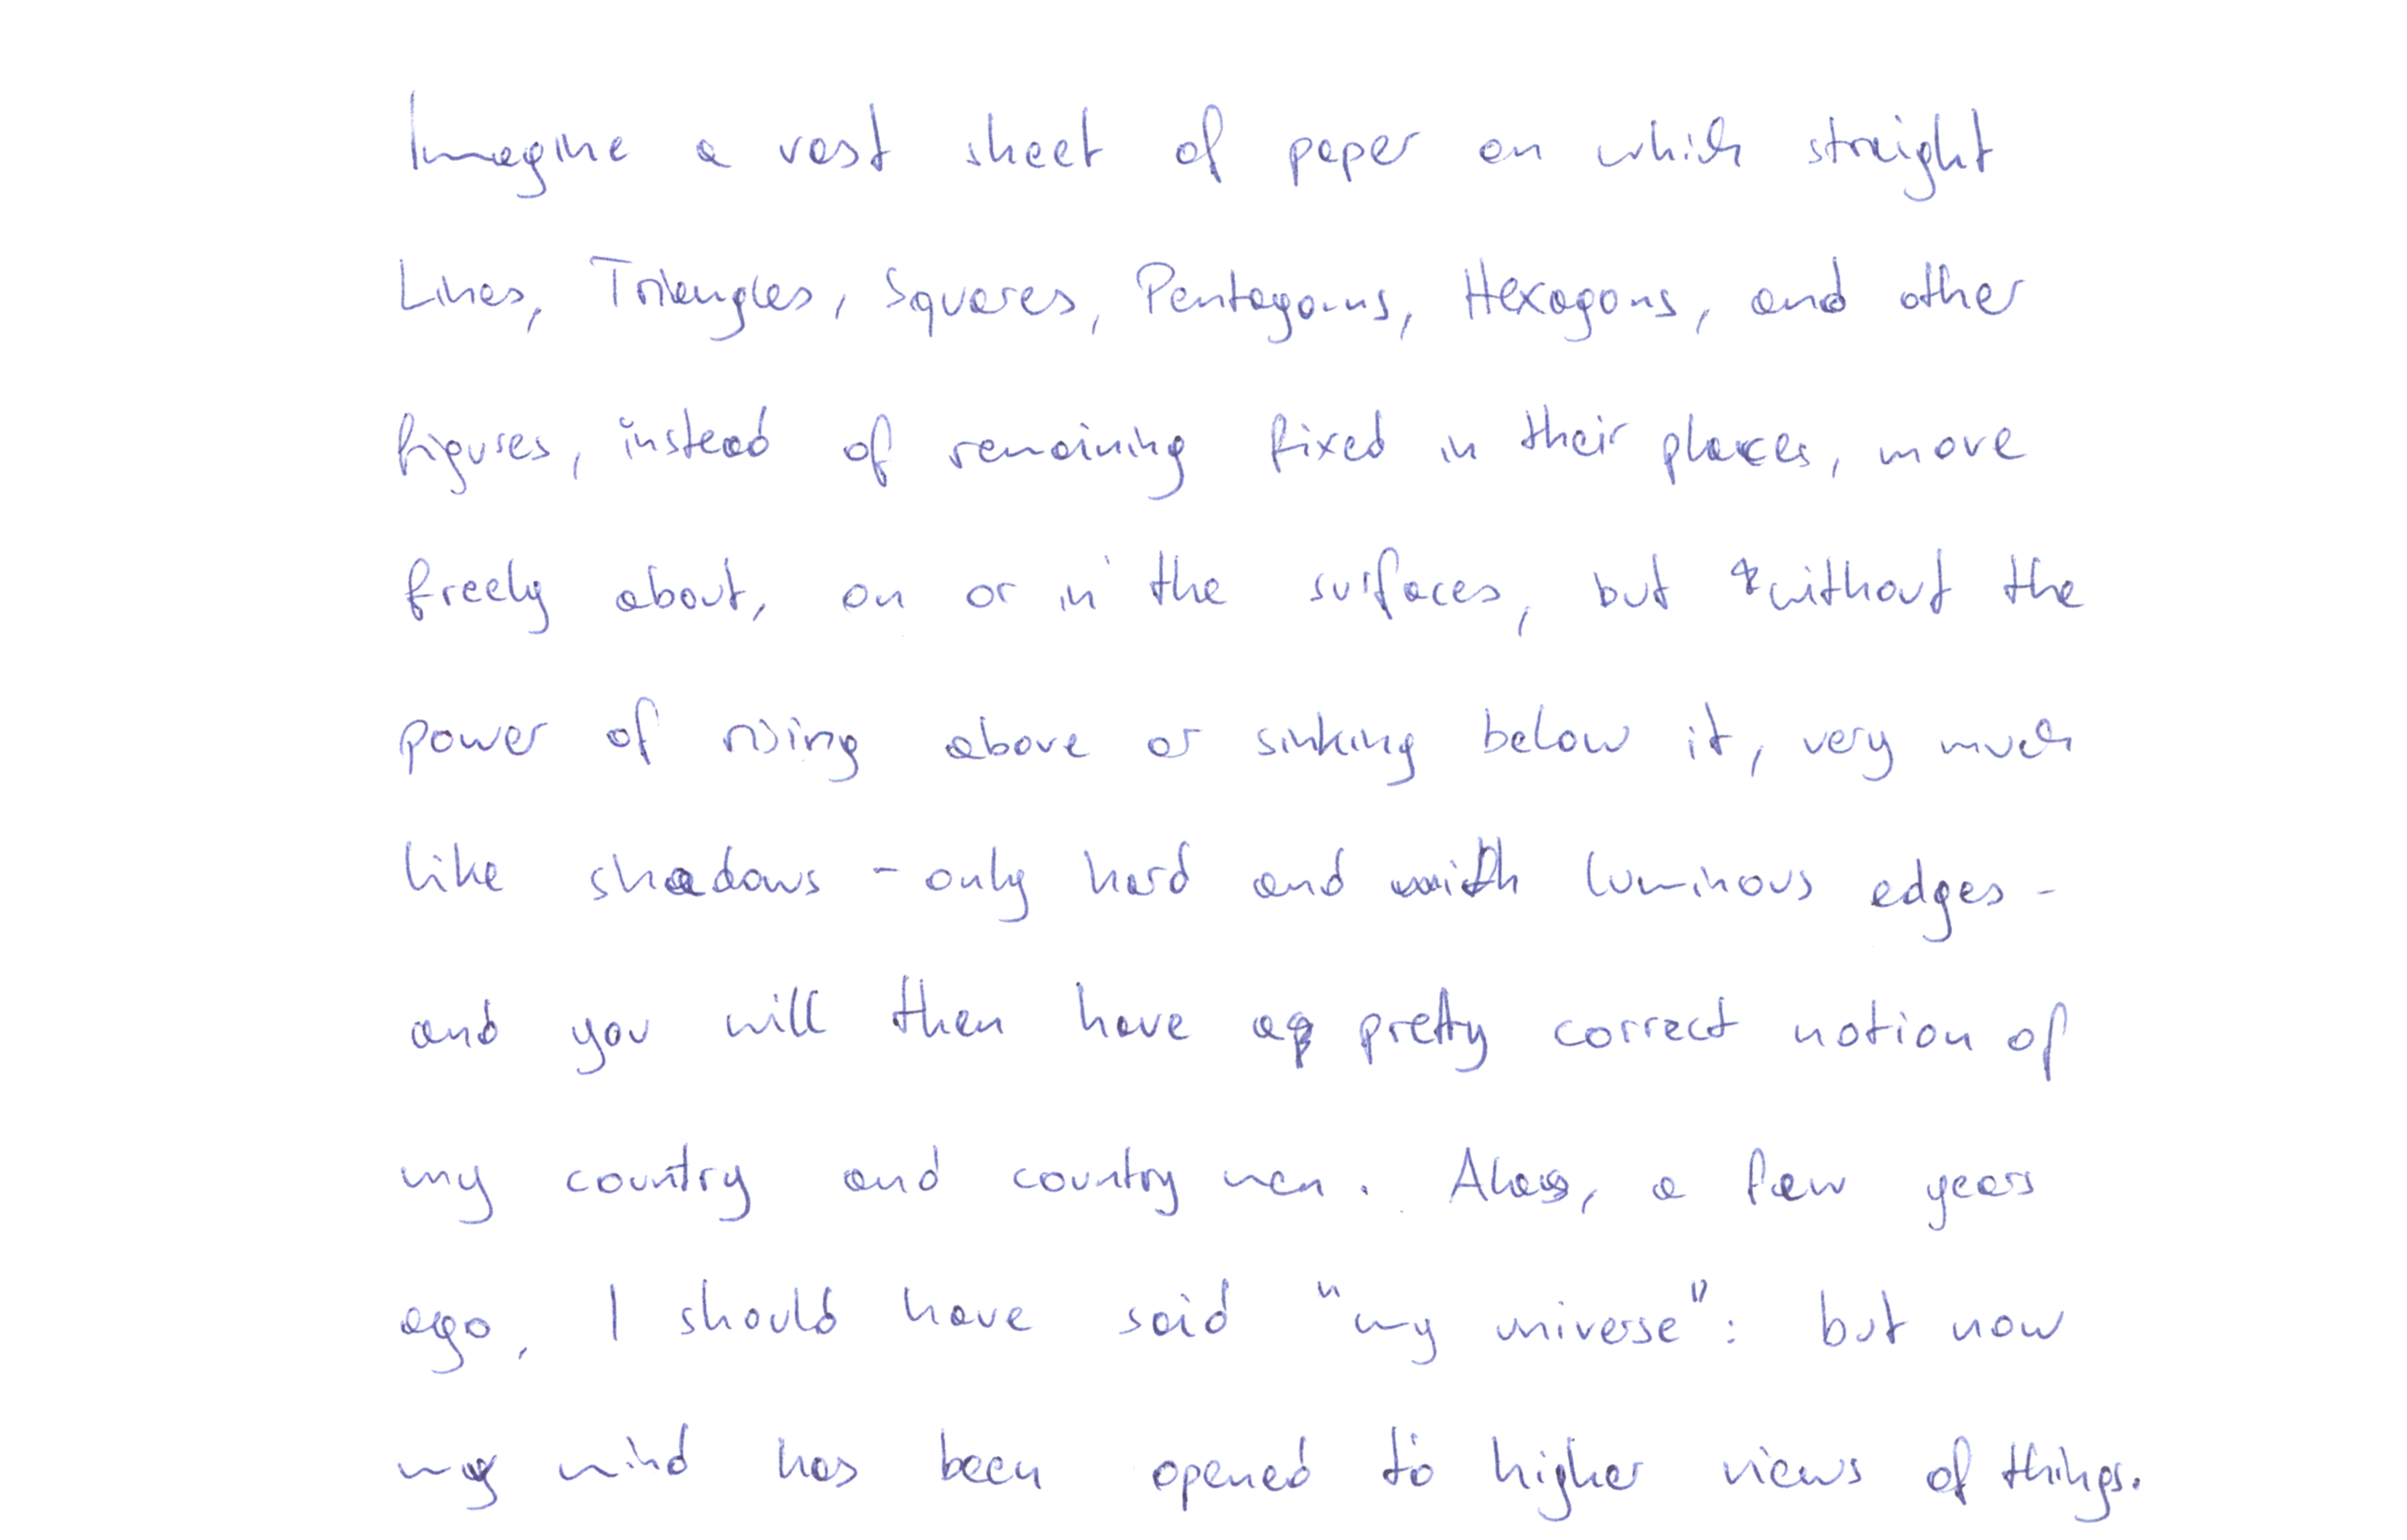 Imagine a vast sheet of paper on which straight
Lines, Triangles, Squares, Pentagons, Hexagons, and other
figures, instead of remaining fixed in their places, move
freely about, on or in the surfaces, but without the
power of rising above or sinking below it, very much
like shadows - only hard and with luminous edges -
and you will then have a pretty correct notion of
my country and countrymen. Alas, a few years
ago, I should have said "my universe": but now
my mind has been opened to higher views of things.